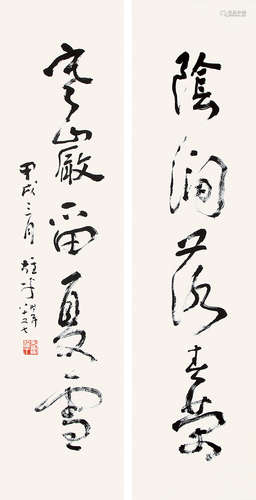 陰澗落春榮
寒巖留夏雪
甲戌三月